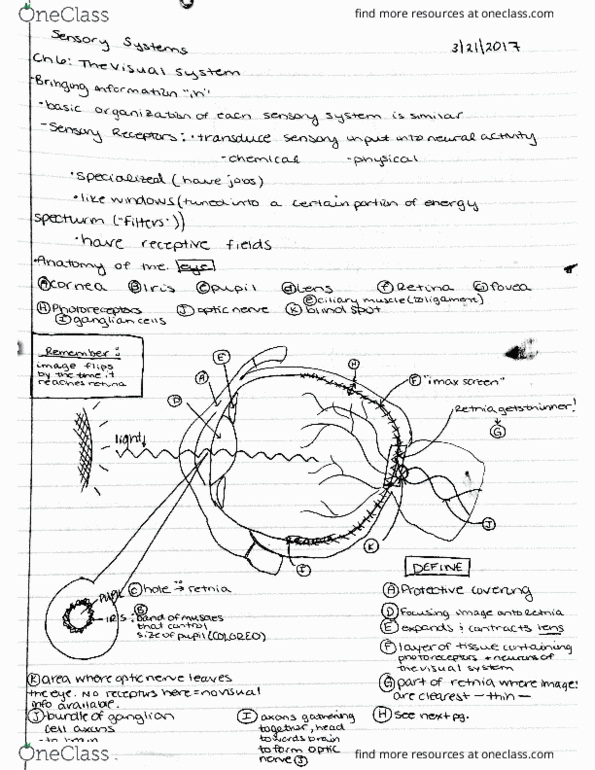 OneClass
find more resources at oneclass.com
Sensory Systems
3/21/2017
Ch6: The Visual System
-Bringing information "in"
•basic organization of each sensory system is similar
-Sensory Receptors: •transduce sensory input into neural activity
-chemical -physical
•specialized (have jobs)
•like windows (tuned into a certain portion of energy
specturm ("filters"))
•have receptive fields
•Anatomy of the eye
A cornea B Iris C pupil D Lens F Retina G fovea
E ciliary muscle (to ligament)
H Photoreceptors J optic nerve K blind spot
I ganglian cells
Remember:
image flips
by the time it
reaches retina
E
A
H
F "imax screen"
D
Retnia gets thinner!
G
light
J
K
I
DEFINE
pupil
C hole → retnia
B
IRIS: band of muscles
that control
size of pupil (COLORED)
A Protective covering
D Focusing image onto Retnia
E expands & contracts lens
F layer of tissue containing
photoreceptors + neurons of
the visual system
G part of retnia where images
are clearest - thin -
H See next pg.
K area where optic nerve leaves
the eye. No receptors here = no visual
info available.
J bundle of ganglian
cell axons
- to brain
I axons gathering
together, head
towards brain
to form optic
nerve J
OneClass
find more resources at oneclass.com